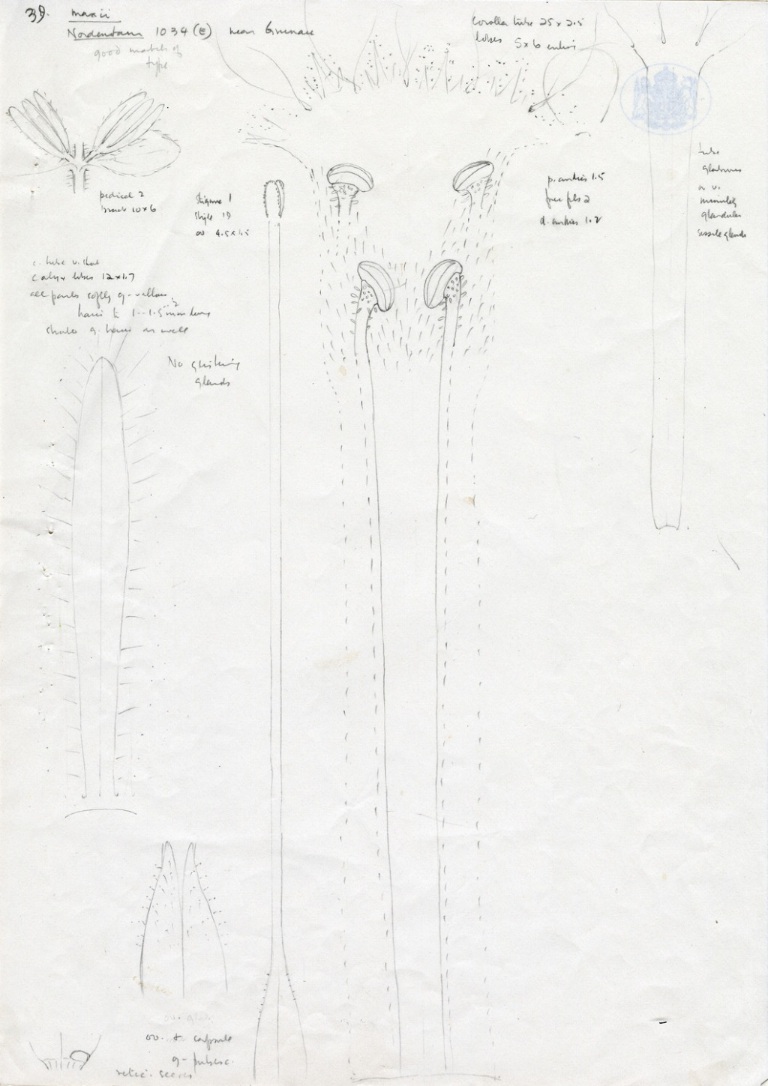 39. maxii
Nordenstam 1034 (E) near Brunau
good match of
type
Corolla tube 25 x 2.5
lobes 5x6 entire
pedicel 2
bract 10x6
stigma 1
style 19
ov 4.5x1.5
p. anthers 1.5
free fils 2
a. anthers 1.2
tube
glabrous
or v.
minutely
glandular
sessile glands
c. tube v. short
calyx lobes 12x1.7
all parts softly g-villous
hairs to 1-1.5 mm long
shorter g-hairs as well
No glistening
glands
ov. & capsule
g-pubesc.